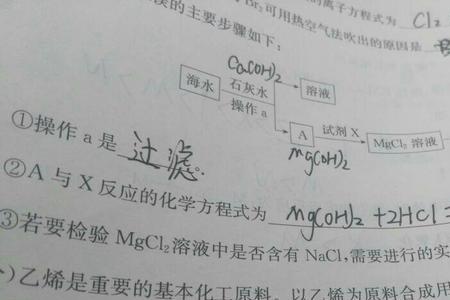 的离子方程式为 Cl₂
Br₂可用热空气法吹出的原因是
的主要步骤如下：
Ca(OH)₂
海水 石灰水 操作a 溶液
A 试剂X MgCl₂溶液
Mg(OH)₂
①操作a是 过滤.
②A与X反应的化学方程式为 Mg(OH)₂+2HCl=
③若要检验MgCl₂溶液中是否含有NaCl,需要进行的实
)乙烯是重要的基本化工原料。以乙烯为原料合成用